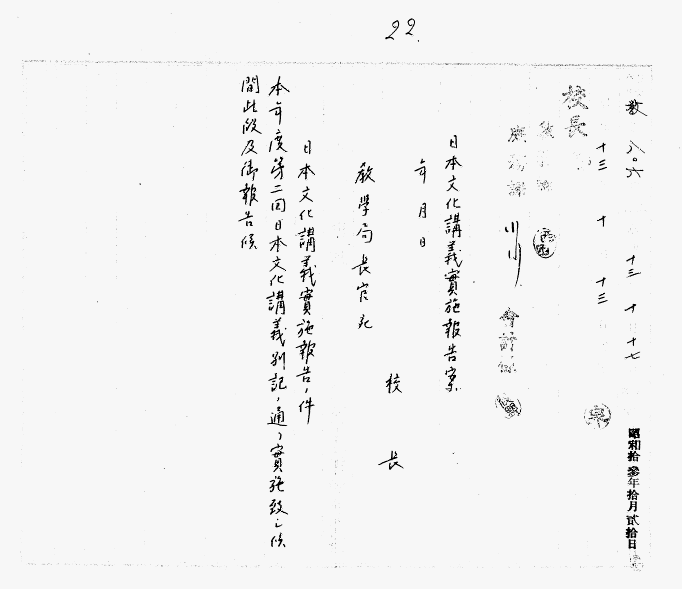 22.
教 八〇六 十三 十 十七
昭和拾参年拾月貳拾日
十三 十 十三
校長
庶務課 会計係
日本文化講義實施報告案
年月日
校長
教學局長官宛
日本文化講義實施報告ノ件
本年度第二回日本文化講義別記ノ通リ實施致シ候
間此段及御報告候